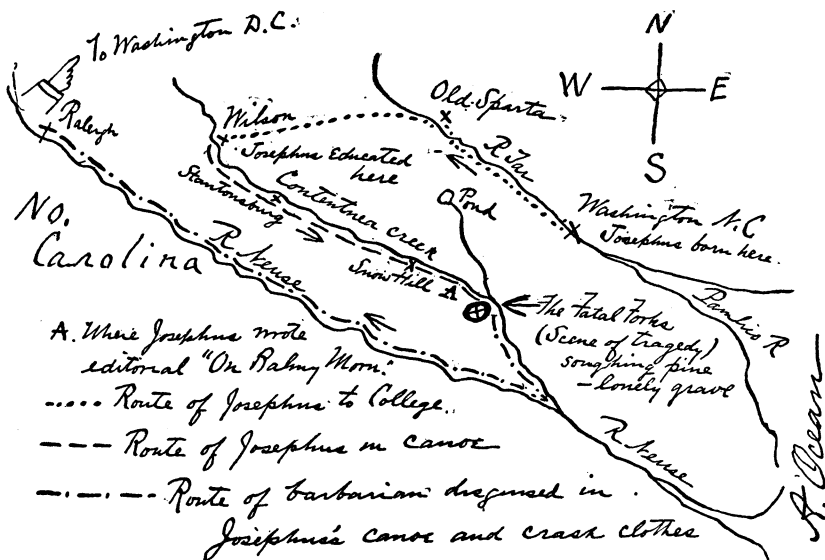 To Washington D.C.
N
W E
S
Raleigh
Wilson
Old Sparta
R Tar
Josephus Educated
here
Stantonsburg
Contentnea creek
Pond
Washington N.C
Josephus born here.
No.
Carolina
R Neuse
Snow Hill
A
Pamlico R
The Fatal Forks
(Scene of tragedy)
soughing pine
- lonely grave
A. Where Josephus wrote
editorial "On Balmy Morn."
..... Route of Josephus to College.
--- Route of Josephus in canoe
-.-.- Route of barbarian disguised in
Josephus's canoe and crash clothes
R Neuse
A. Ocean